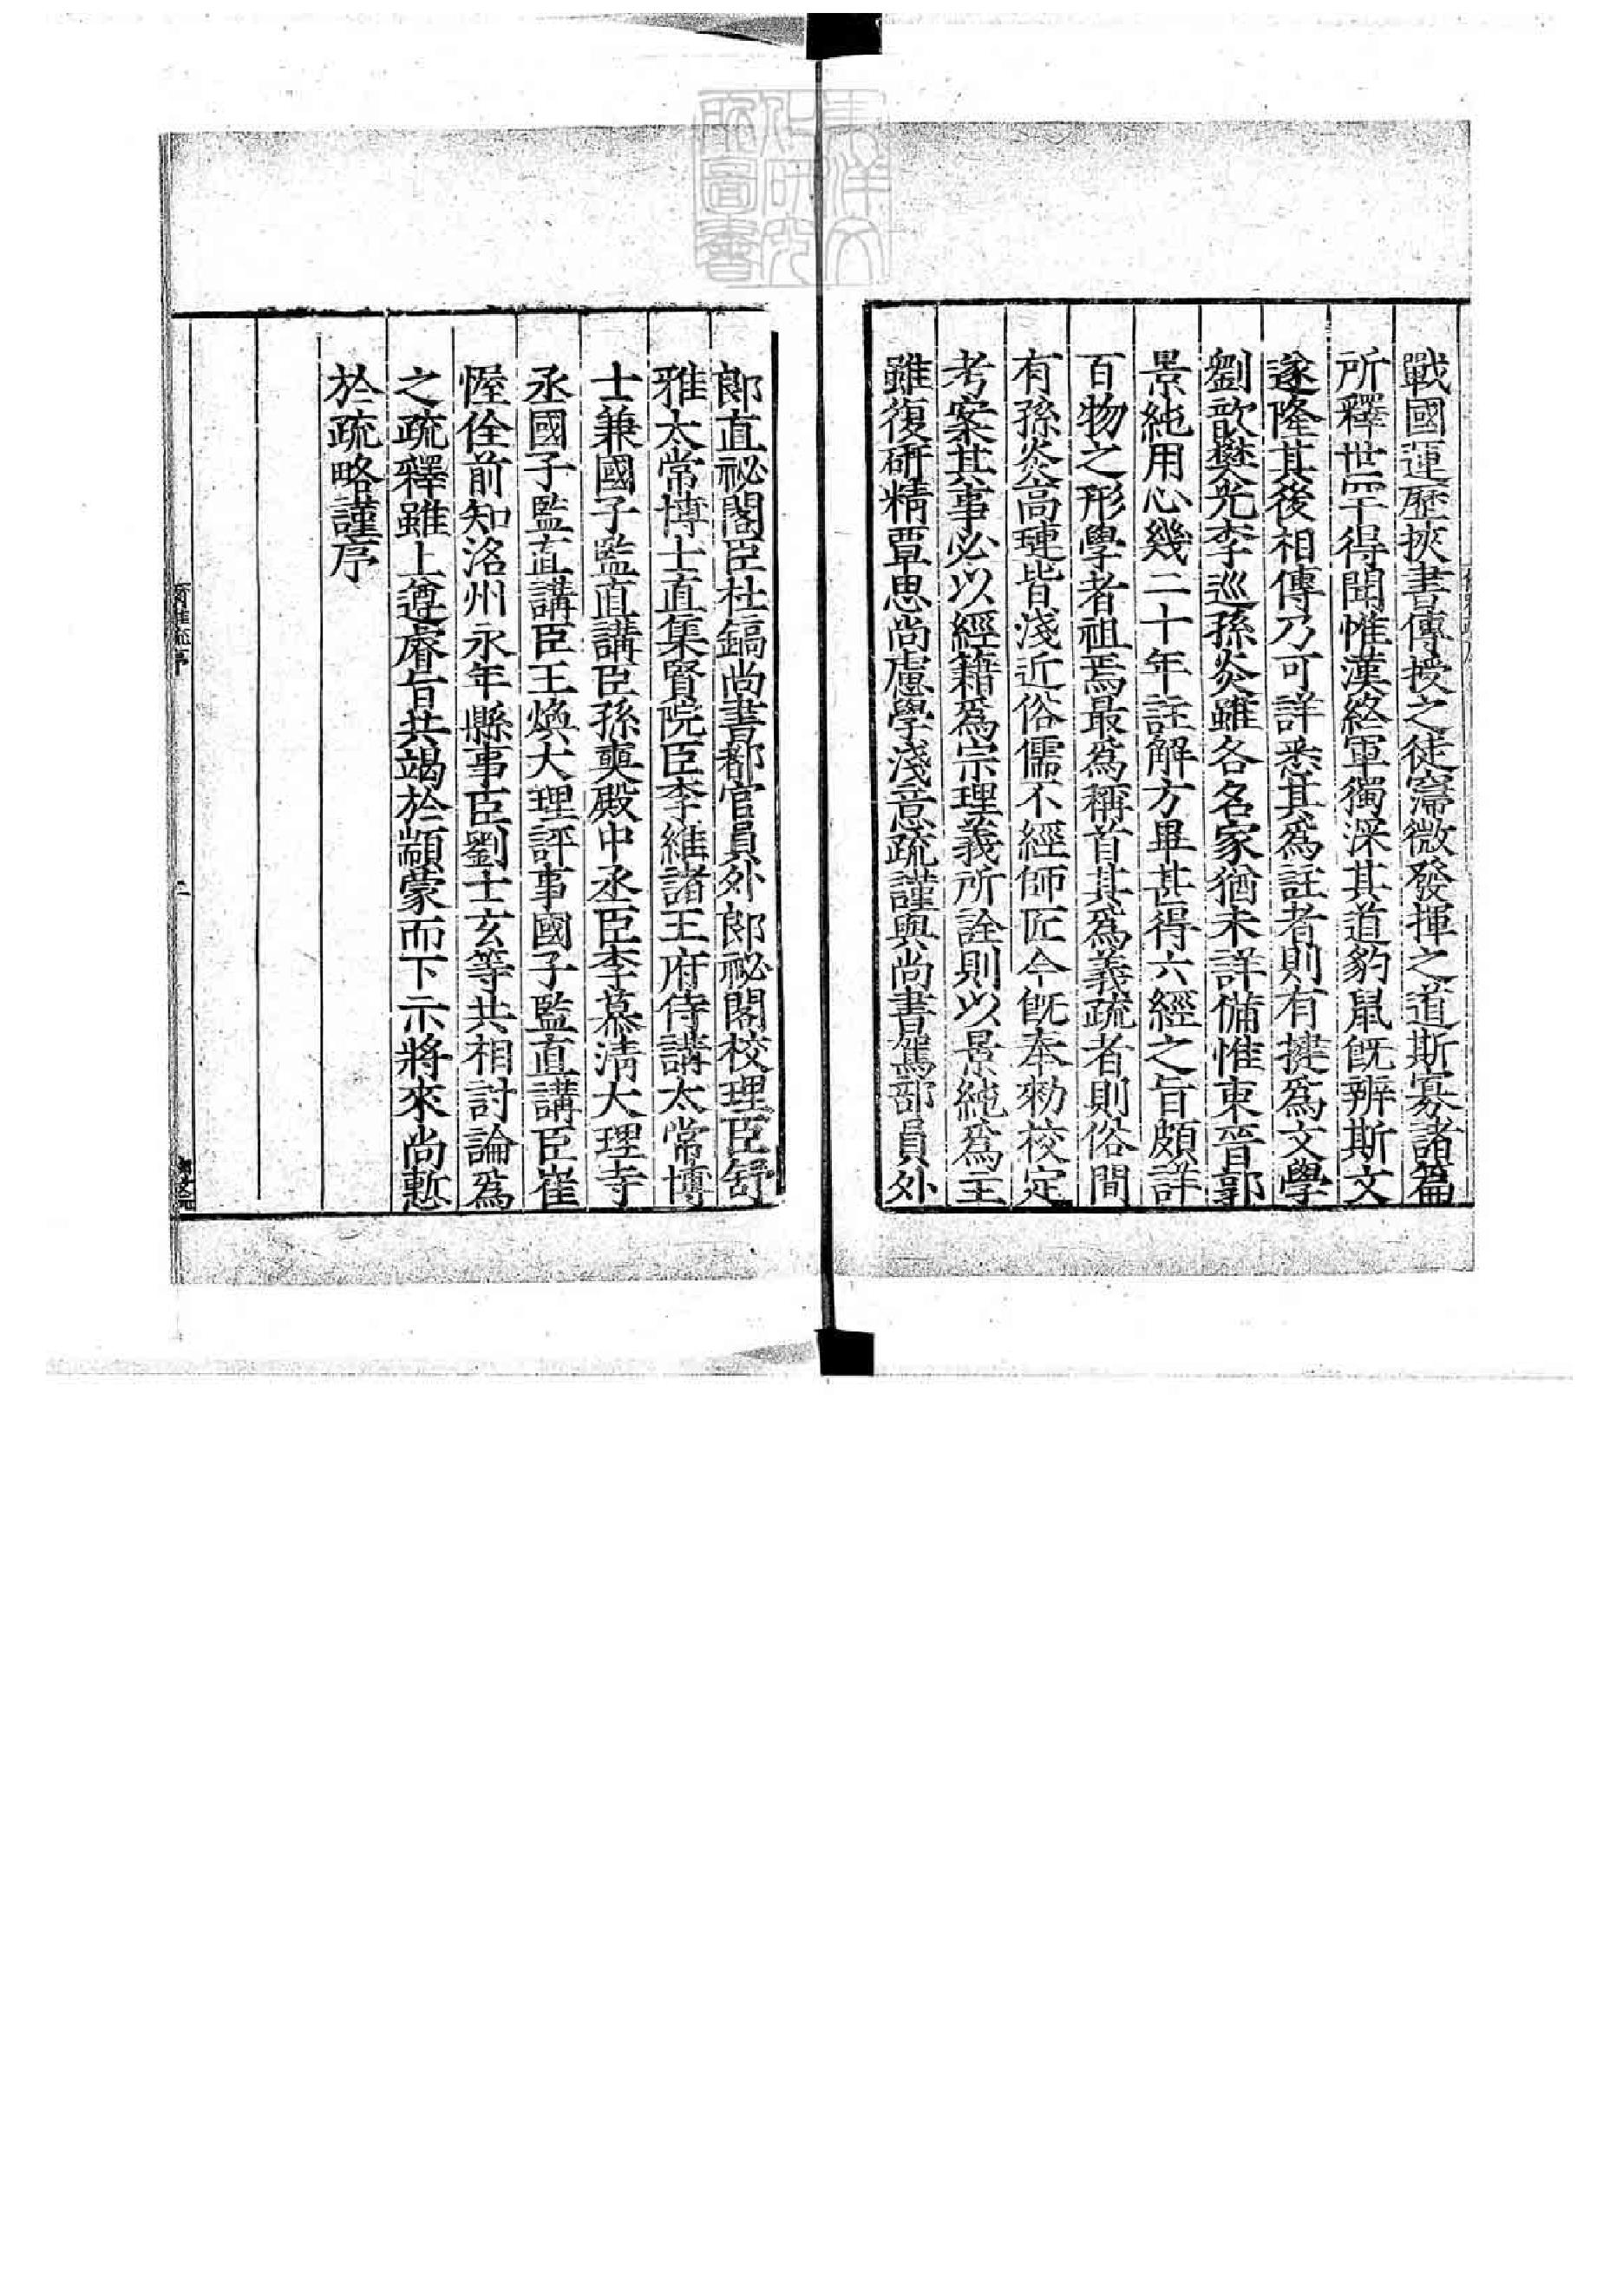 戰國運歷挾書傳授之徒寖微發揮之道斯寡諸篇
所釋世罕得聞惟漢終軍獨深其道豹鼠旣辨斯文
遂隆其後相傳乃可詳悉其爲註者則有犍爲文學
劉歆樊光李巡孫炎雖各名家猶未詳備惟東晉郭
景純用心幾二十年註解方畢甚得六經之旨頗詳
百物之形學者祖焉最爲稱首其爲義疏者則俗間
有孫炎高璉皆淺近俗儒不經師匠今旣奉勑校定
考案其事必以經籍爲宗理義所詮則以景純爲主
雖復研精覃思尚慮學淺意疏謹與尚書駕部員外
郎直祕閣臣杜鎬尚書都官員外郎祕閣校理臣舒
雅太常博士直集賢院臣李維諸王府侍講太常博
士兼國子監直講臣孫奭殿中丞臣李慕清大理寺
丞國子監直講臣王煥大理評事國子監直講臣崔
偓佺前知洺州永年縣事臣劉士玄等共相討論爲
之疏釋雖上遵睿旨共竭於顓蒙而下示將來尚慙
於疏略謹序
爾雅疏序
二
東洋文
化研究
所圖書